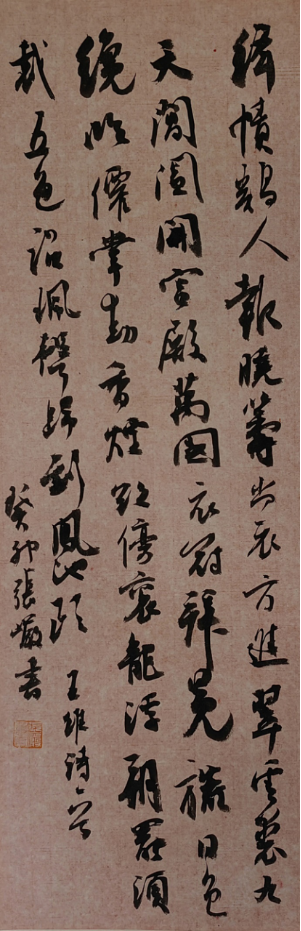 絳幘鷄人報曉籌尚衣方進翠雲裘九
天閶闔開宮殿萬國衣冠拜冕旒日色
纔臨僊掌動香煙欲傍袞龍浮朝罷須
裁五色詔珮聲歸到鳳池頭 王維詩一首
癸卯張書